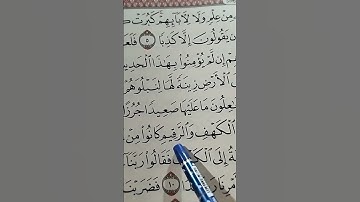 مِنْ عِلْمٍ وَلَا لِآبَائِهِمْ كَبُرَتْ
يَقُولُونَ إِلَّا كَذِبًا ٥ فَلَعَ
إِن لَّمْ يُؤْمِنُوا بِهَٰذَا الْحَدِيـ
الْأَرْضِ زِينَةً لَّهَا لِنَبْلُوَهُمْ
عِلُونَ مَا عَلَيْهَا صَعِيدًا جُرُزًا
الْكَهْفِ وَالرَّقِيمِ كَانُوا مِنْ
ةُ إِلَى الْكَ فَقَالُوا رَبَّنَا
١٠ فَضَرَبْنَا